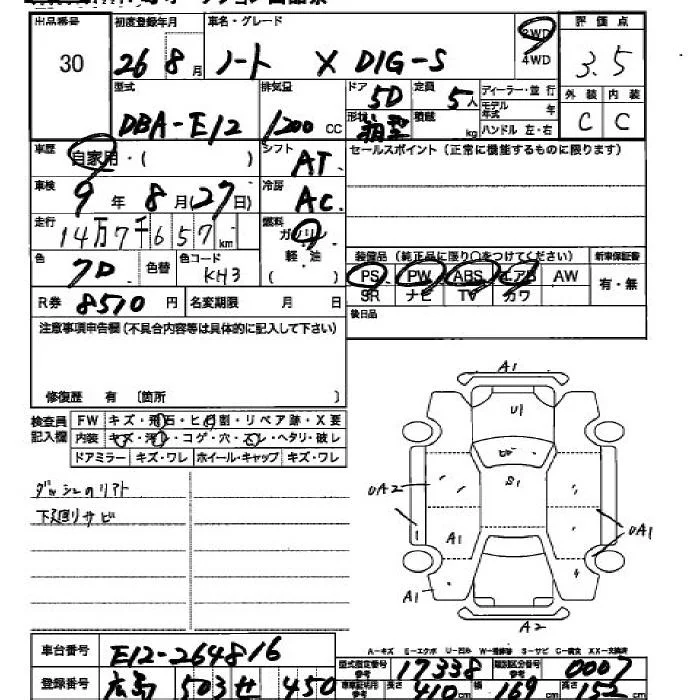 出品番号 初度登録年月 車名・グレード 2WD 4WD 評価点
30 26 8月 ノート X DIG-S 3.5
型式 排気量 ドア 定員 ディーラー・並行 外装 内装
DBA-E12 1200cc 5D 5人 モデル年式 年 C C
形状 箱型 積載 kg ハンドル 左・右
車歴 自家用・( ) シフト AT セールスポイント(正常に機能するものに限ります)
車検 9年8月(27日) 冷房 AC
走行 14万7千657km 燃料 ガソリン 軽・油 ( )
装備品(純正品に限り○をつけてください) 新車保証書
色 色替 色コード KH3 PS PW ABS エアB AW 有・無
SR ナビ TV カワ
R券 8510円 名変期限 月 日 後日品
注意事項申告欄(不具合内容等は具体的に記入して下さい)
修復歴 有 〔箇所 〕
検査員記入欄 FW キズ・飛石・ヒビ割・リペア跡・X要
内装 キズ・汚レ・コゲ・穴・スレ・ヘタリ・破レ
ドアミラー キズ・ワレ ホイール・キャップ キズ・ワレ
下廻りサビ
A1
U1
ビ
S1
UA2
A1
UA1
A1
A2
A-キズ E-エクボ U-凹ル W-補修跡 S-サビ C-腐食 XX-交換済
車台番号 E12-264816 型式指定番号 参考 17338 類別区分番号 参考 0007
登録番号 広島 503 せ 450 車車証明用 参考 長さ 410cm 幅 169cm 高さ 152cm